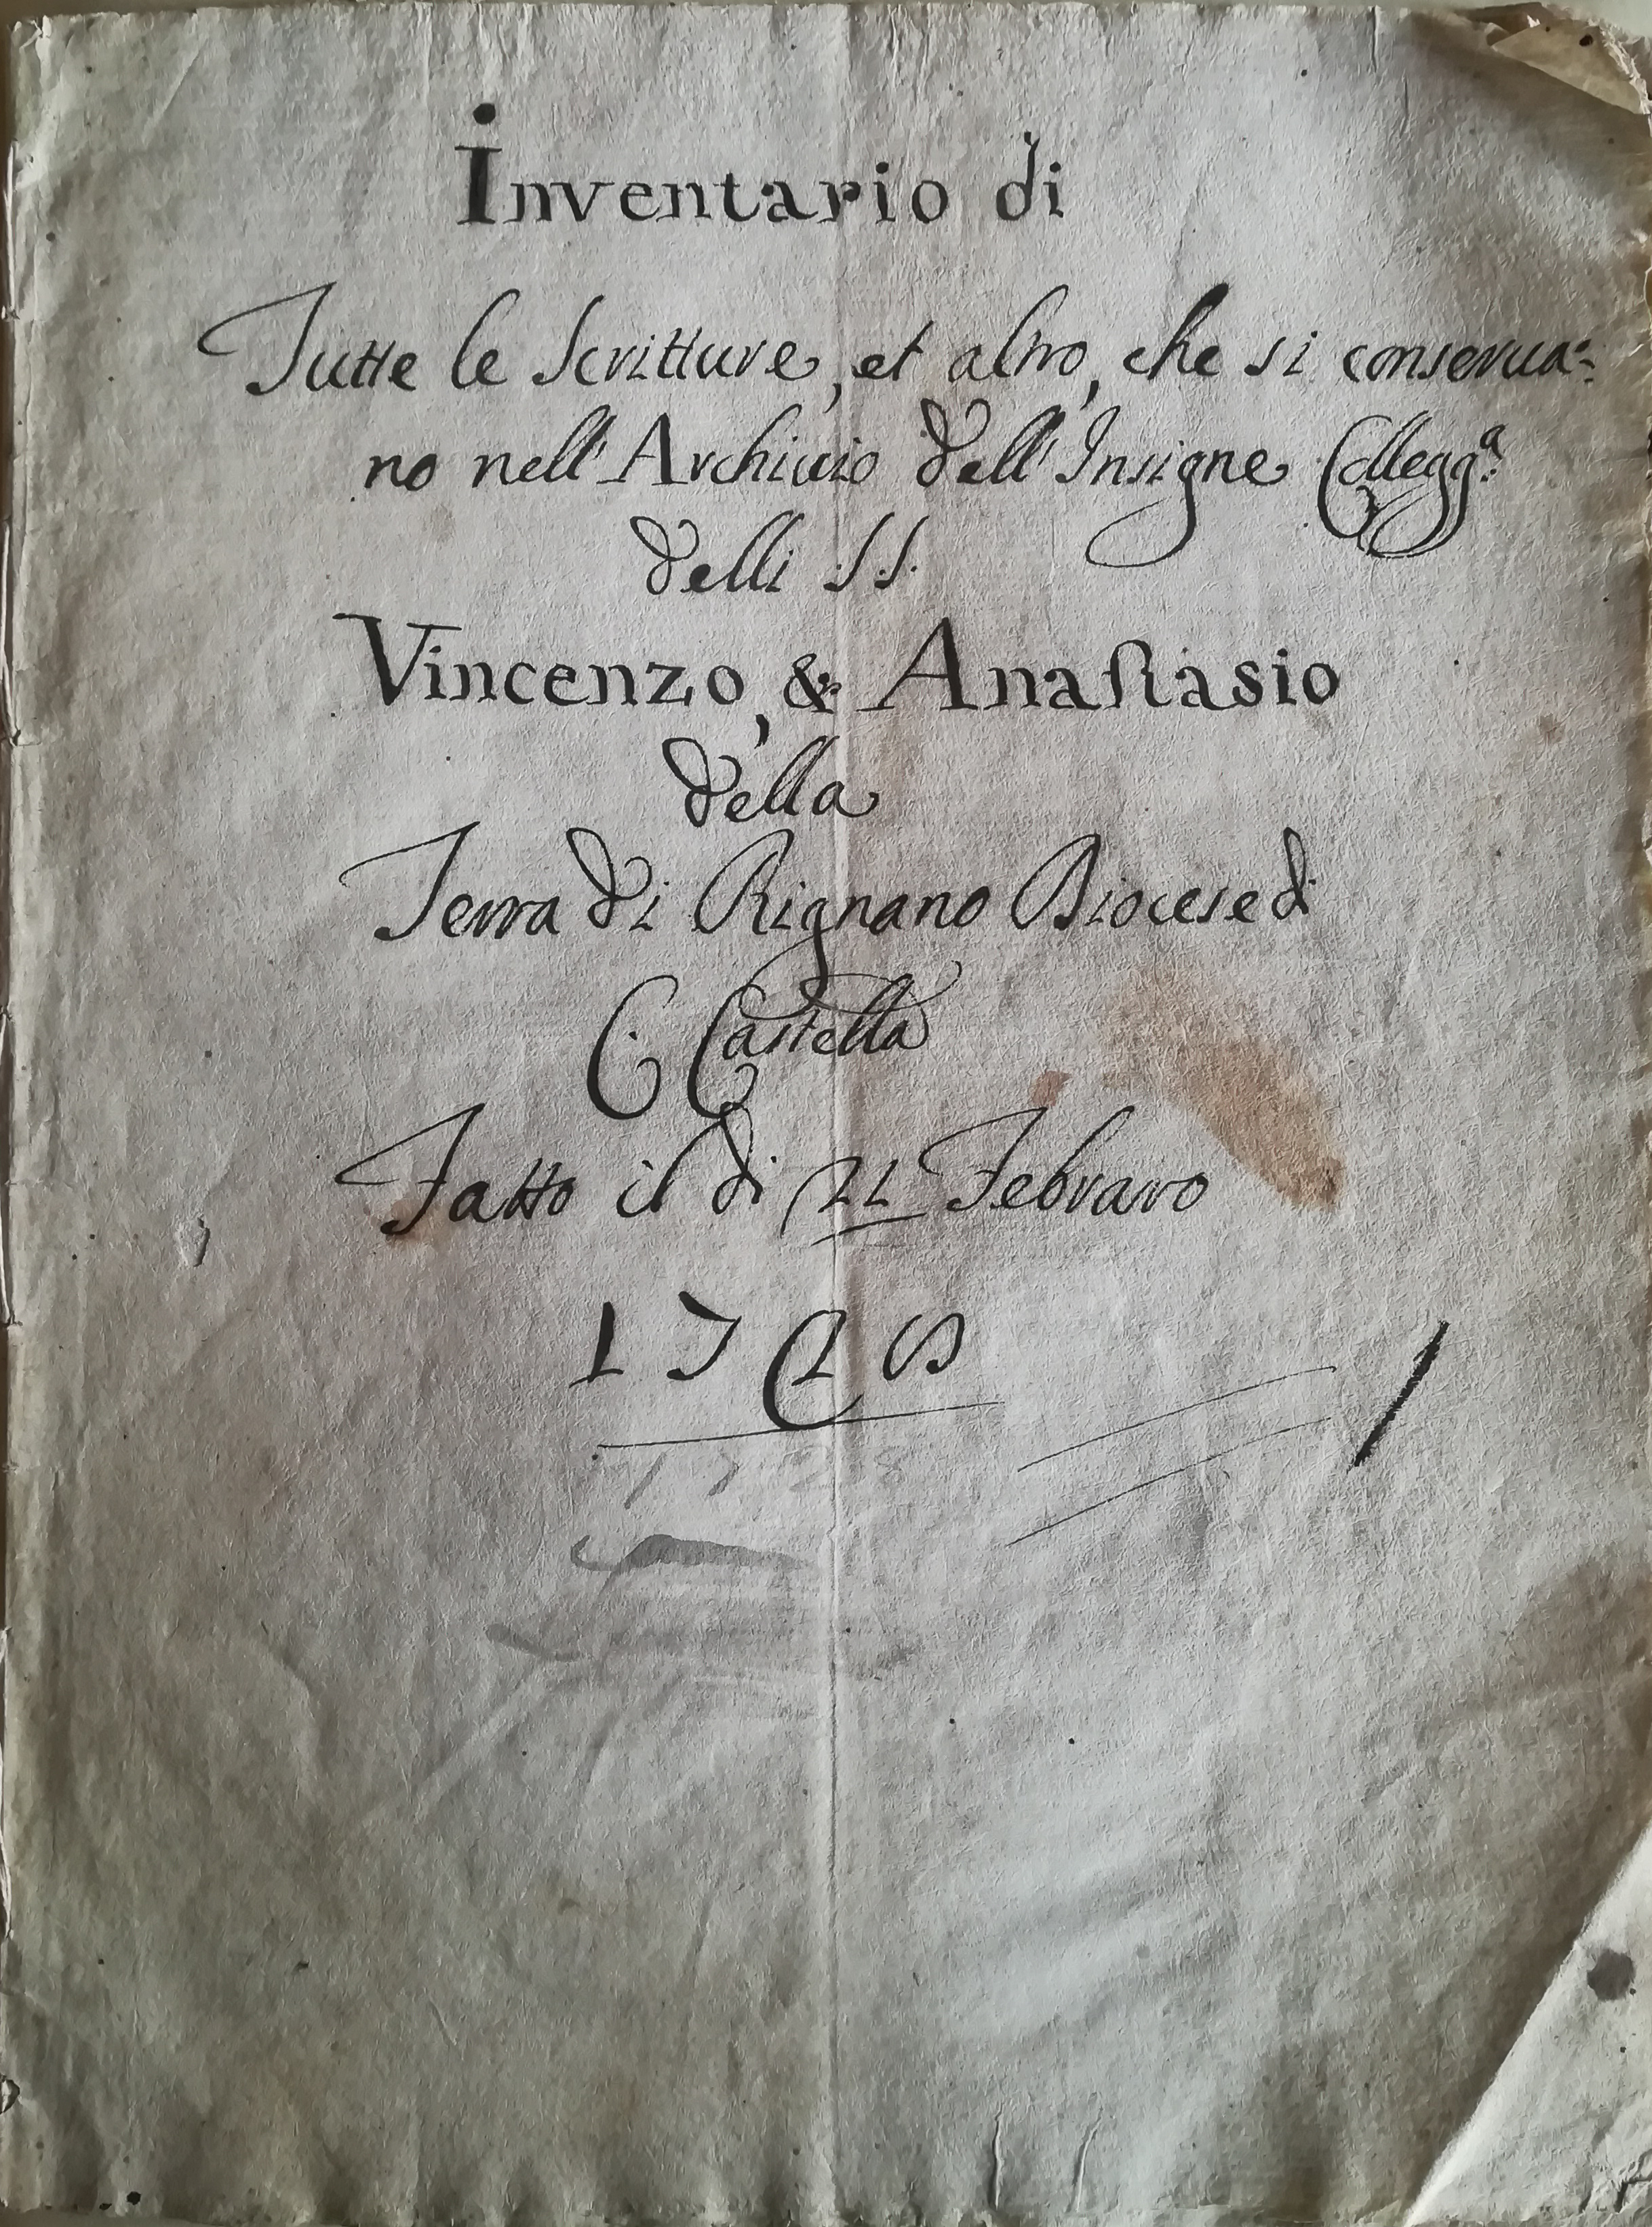 Inventario di
Tutte le Scritture, et altro, che si conserua=
no nell'Archiuio dell'Insigne Collegg.a
delli SS.
Vincenzo, & Anastasio
della
Terra di Rignano Diocese di
C. Castella
Fatto il di 22 Febraro
1728
1728